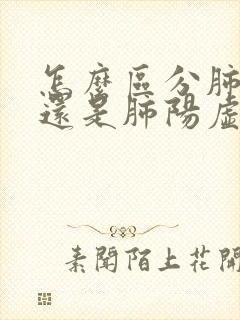 怎麼區分肺
還是肺陽虛
素聞陌上花開